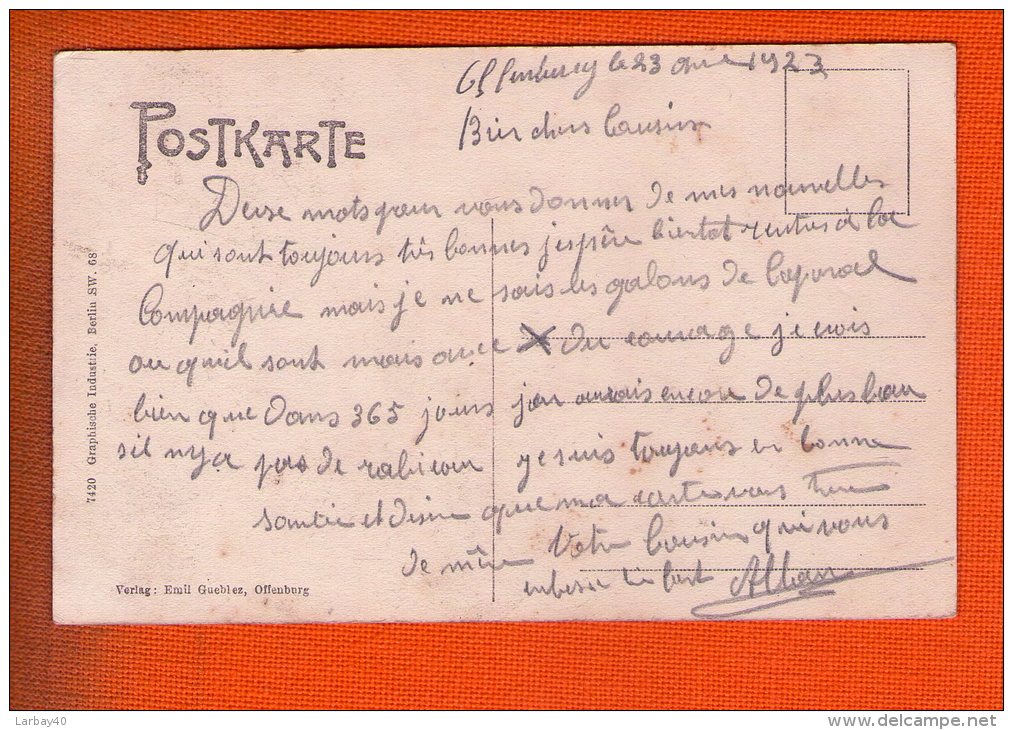 Offenburg le 23 avril 1923
POSTKARTE
Bien chers Cousins
Deux mots pour vous donner de mes nouvelles
qui sont toujours très bonnes j'espère bientot rentrer à la
Compagnie mais je ne sais les galons de Caporal
ou qu'il sont mais avec du courage je crois
bien que dans 365 jours j'en aurais encore de plus beau
sil ny a pas de rabiou je suis toujours en bonne
santée et désire que ma carte vous trouve
de même Votre Cousin qui vous
embrasse très fort Alban
7420 Graphische Industrie, Berlin SW. 68
Verlag: Emil Gueblez, Offenburg
Larbay40
www.delcampe.net